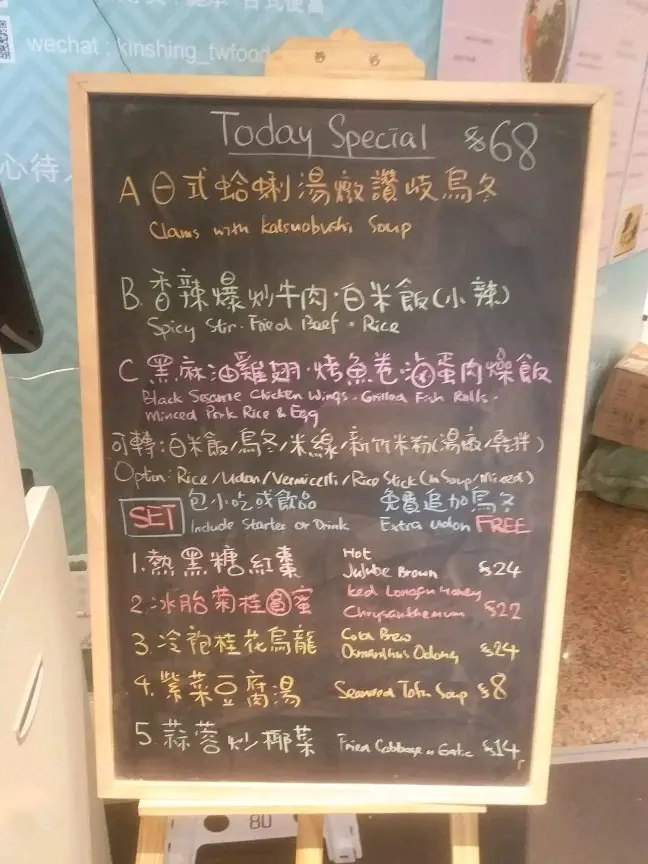 wechat : kinshing_twfood
心待
Today Special $68
A 日式蛤蜊湯燉讚岐烏冬
Clams with Katsuobushi Soup
B. 香辣爆炒牛肉·白米飯(小辣)
Spicy Stir-Fried Beef · Rice
C 黑麻油雞翅·烤魚卷·滷蛋肉燥飯
Black Sesame Chicken Wings · Grilled Fish Rolls ·
Minced Pork Rice & Egg
可轉:白米飯/烏冬/米線/新竹米粉(湯燉/乾拌)
Option: Rice/Udon/Vermicelli/Rice Stick (In Soup/Mixed)
SET 包小吃或飲品 免費追加烏冬
Include Starter or Drink Extra Udon FREE
1. 熱黑糖紅棗 Hot Jujube Brown $24
2. 冰胎菊桂圓蜜 Red Longan Honey Chrysanthemum $22
3. 冷袍桂花烏龍 Cold Brew Osmanthus Oolong $24
4. 紫菜豆腐湯 Seaweed Tofu Soup $8
5. 蒜蓉炒椰菜 Fried Cabbage w Garlic $14